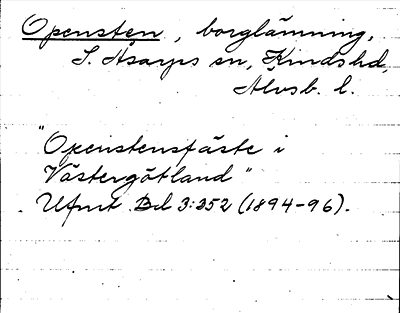 Opensten, borglämning,
S. Åsarps sn, Kindshd,
Älvsb. l.
"Openstensfäste i
Västergötland"
Ufmt Bd 3:352 (1894-96).